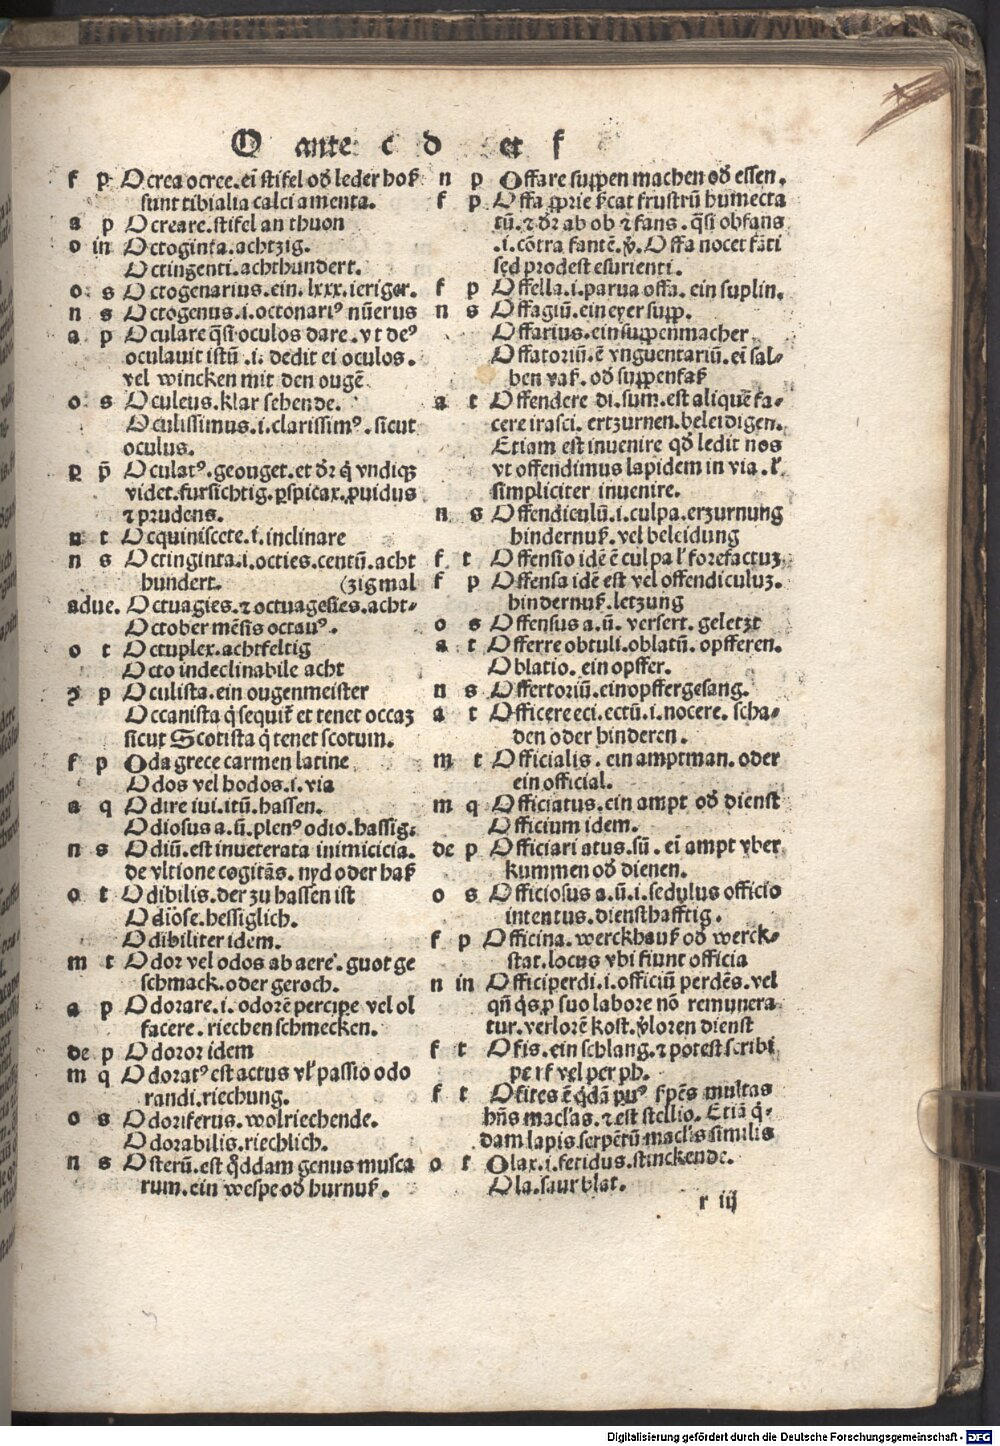 O ante c d et f
f p Ocrea ocree.eī stifel od̕ leder hoß
sunt tibialia calciamenta.
a p Ocreare.stifel an thuon
o in Octoginta.achtzig.
Octingenti.achthundert.
o s Octogenarius.ein.lxxx.ieriger.
n s Octogenus.i.octonariꝰ nūerus
a p Oculare q̄si oculos dare.vt deꝰ
oculauit istū.i.dedit ei oculos.
vel wincken mit den ougē
o s Oculeus.klar sehende.
Oculissimus.i.clarissimꝰ.sicut
oculus.
p p̄ Oculatꝰ.geouget.et dr̄ q̄ vndiqꝫ
videt.fursichtig.ꝑspicax.ꝓuidus
⁊ prudens.
n t Ocquiniscere.i.inclinare
n s Octinginta.i.octies.centū.acht
hundert. (zigmal
adue. Octuagies.⁊ octuagesies.acht-
October mēsis octauꝰ.
o t Octuplex.achtfeltig
Octo indeclinabile acht
p Oculista.ein ougenmeister
Occanista q̄ sequit̄ et tenet occaꝫ
sicut Scotista q̄ tenet scotum.
f p Oda grece carmen latine
Odos vel hodos.i.via
a q Odire iui.itū.hassen.
Odiosus a.ū.plenꝰ odio.hassig.
n s Odiū.est inueterata inimicicia.
de vltione cogitās.nyd oder haß
o t Odibilis.der zu hassen ist
Odiose.hessiglich.
Odibiliter idem.
m t Odor vel odos ab aere.guot ge
schmack.oder geroch.
a p Odorare.i.odorē percipe vel ol
facere.riechen schmecken.
de p Odoror idem
m q Odoratꝰ est actus vl̕ passio odo
randi.riechung.
o s Odoriferus.wolriechende.
Odorabilis.riechlich.
n s Osterū.est q̊ddam genus musca
rum.ein wespe od̕ hurnuß.
n p Offare suppen machen od̕ essen.
f p Offa ꝓprie ſ̕cat frustrū humecta
tū.⁊ dr̄ ab ob ⁊ fans.q̄si obfans
.i.cōtra fantē.v̕.Offa nocet fāti
sed prodest esurienti.
f p Offella.i.parua offa.ein suplin.
n s Offagiū.ein eyer supp.
Offarius.ein suppenmacher
Offatoriū.ē vnguentariū.eī sal-
ben vaß.od̕ suppenfaß
a t Offendere di.sum.est aliquē fa-
cere irasci.ertzurnen.beleidigen.
Etiam est inuenire qd̕ ledit nos
vt offendimus lapidem in via.l̕
simpliciter inuenire.
n s Offendiculū.i.culpa.erzurnung
hindernuß.vel beleidung
f t Offensio idē ē culpa l̕ forefactuꝫ
f p Offensa idē est vel offendiculuꝫ.
hindernuß.letzung
o s Offensus a.ū.versert.geletzt
a t Offerre obtuli.oblatū.opfferen.
Oblatio.ein opffer.
n s Offertoriū.ein opffergesang.
a t Officere eci.ectū.i.nocere.scha-
den oder hinderen.
m t Officialis.ein amptman.oder
ein official.
m q Officiatus.ein ampt od̕ dienst
Officium idem.
de p Officiari atus.sū.eī ampt vber
kummen od̕ dienen.
o s Officiosus a.ū.i.sedulus officio
intentus.diensthafftig.
f p Officina.werckhauß od̕ werck-
stat.locus vbi fiunt officia
n in Officiperdi.i.officiū perdēs.vel
qn̄ q̄s ꝓ suo labore nō remunera
tur.verlorē kost.v̕loren dienst
f t Ofis.ein schlang.⁊ potest scribi
per f vel per ph.
f t Ofites ē q̄dā puꝰ ſpēs multas
hn̄s macl̕as.⁊ est stellio.Etiā q̄-
dam lapis serpētū macl̕is similis
o t Olax.i.fetidus.stinckende.
Ola.saur blat.
r iij
Digitalisierung gefördert durch die Deutsche Forschungsgemeinschaft - DFG